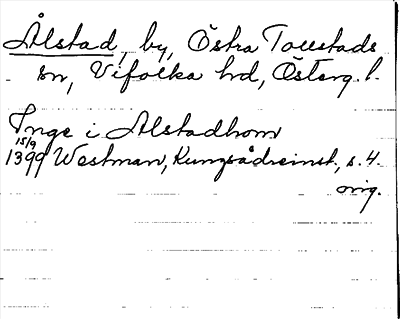 Ålstad, by, Östra Tollstads
sn, Vifolka hd, Österg. l.
Inge i Alstadhom
15/9
1399 Westman, Kungsrådsinst., s. 4.
orig.